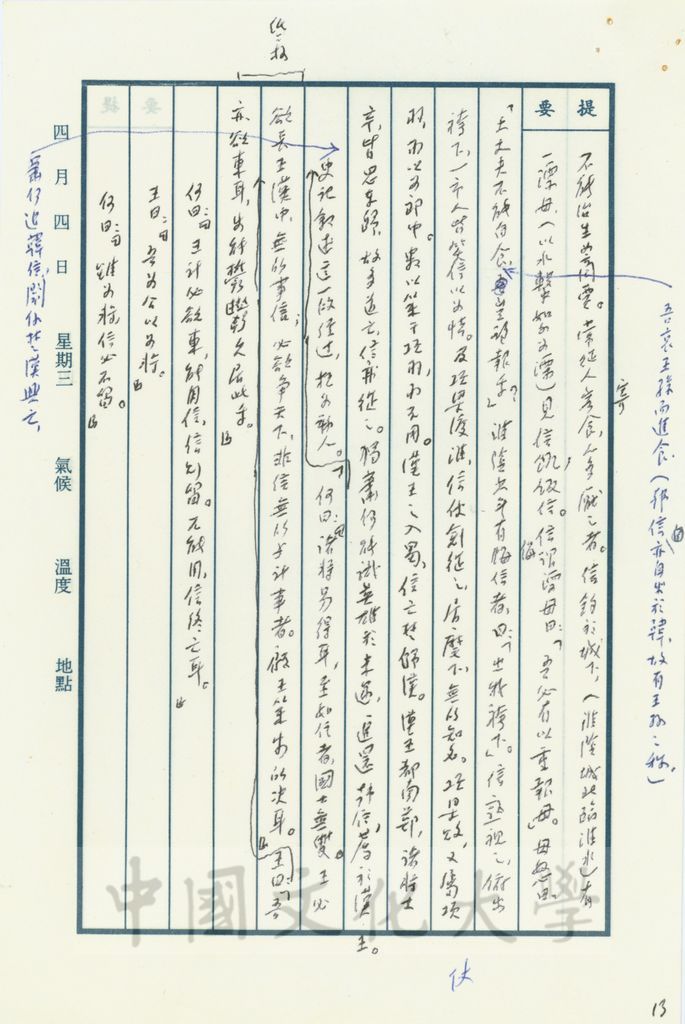 提要
不能治生為商賈。常從人寄食,人多厭之者。信釣於城下,(淮陰城北臨淮水)有
一漂母,(以水擊絮為漂)見信飢,飯信。信謂漂母曰:「吾必有以重報母」。母怒曰:
「大丈夫不能自食,豈望報乎?」淮陰少年有侮信者,曰:「出我袴下。」信孰視之,俯出
袴下,一市人皆笑信以為怯。及項梁渡淮,信仗劍從之,居麾下,無所知名。項梁敗,又屬項
羽,羽以為郎中。數以策干項羽,羽不用。漢王之入蜀,信亡楚歸漢。漢王都南鄭,諸將士
卒,皆思東歸,故多道亡,信亦從之。獨蕭何能識英雄於未遇,追還韓信,薦於漢王。
史記敘述這一段經過,極為動人。「何曰:諸將易得耳,至如信者,國士無雙。王必
欲長王漢中,無所事信;必欲爭天下,非信無所與計事者。顧王策安所決耳。」王曰:「吾
亦欲東耳,安能鬱鬱久居此乎。」
何曰:「王計必欲東,能用信,信即留。不能用,信終亡耳。」
王曰:「吾為公以為將。」
何曰:「雖為將,信必不留。」
四月四日 星期三 氣候 溫度 地點
吾哀王孫而進食(韓信亦自出於韓,故有王孫之稱。)
蕭何追韓信,關係楚漢興亡,
寄
侮
仗
中國文化大學
13